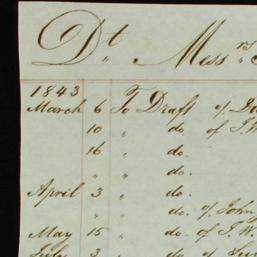 Dt Messrs
1843
March 6 To Draft of
10 " do. of J. W
16 " do.
" " do.
April 3 " do.
" " do. of John
May 15 " do. of J. W.
July 3 " do. of